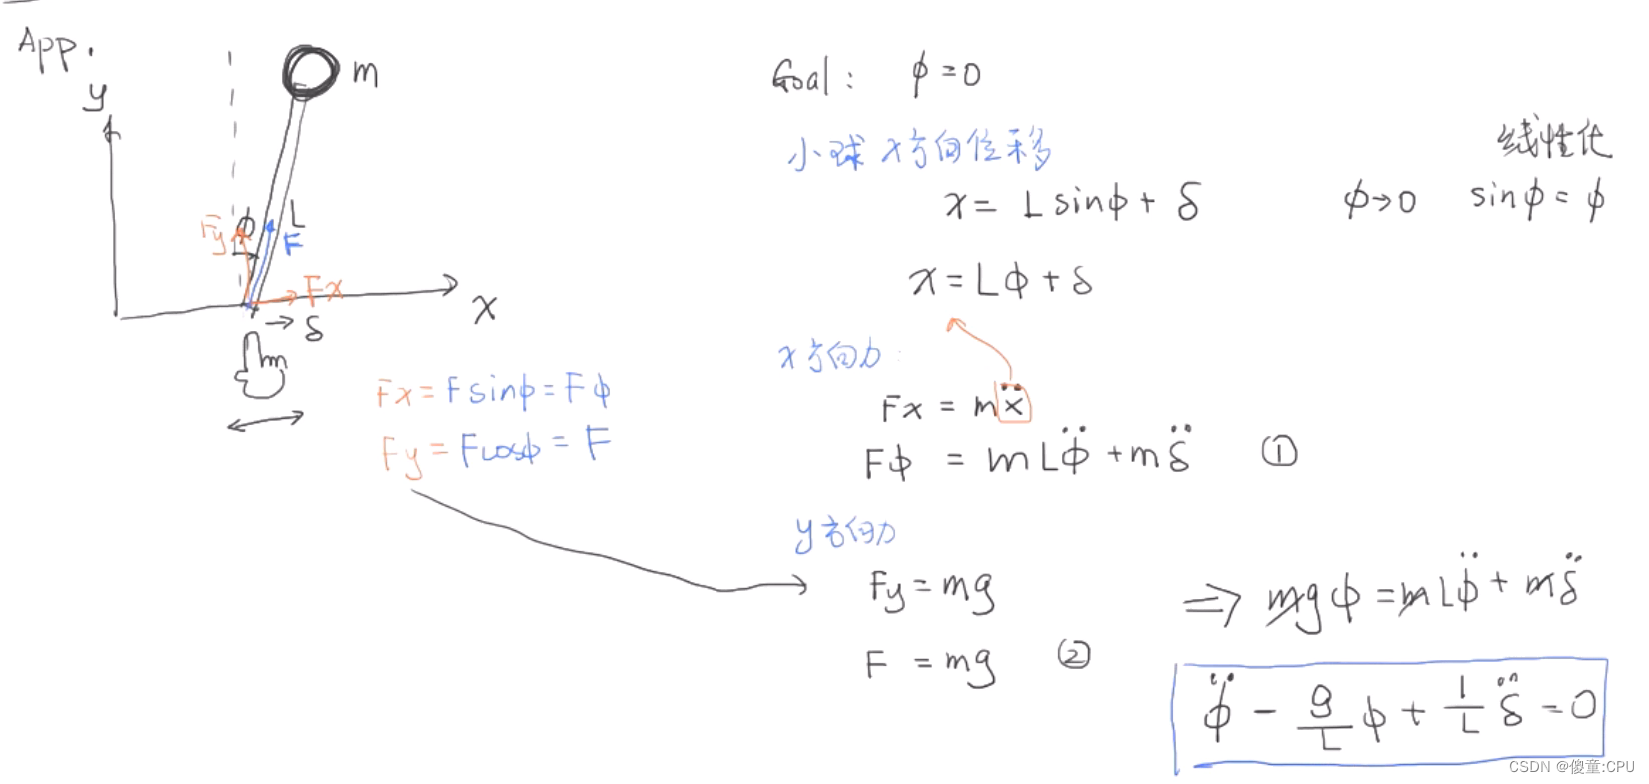 App.
y
m
ϕ
L
Fy
F
Fx
x
→ δ
Fx = F sinϕ = Fϕ
Fy = F cosϕ = F
Goal: ϕ = 0
小球 x方向位移
x = L sinϕ + δ
x = Lϕ + δ
线性化
ϕ→0 sinϕ = ϕ
x方向力:
Fx = mẍ
Fϕ = mLϕ̈ + mδ̈ ①
y方向力
Fy = mg
F = mg ②
⇒ mgϕ = mLϕ̈ + mδ̈
ϕ̈ - g/L ϕ + 1/L δ̈ = 0
CSDN @傻童:CPU